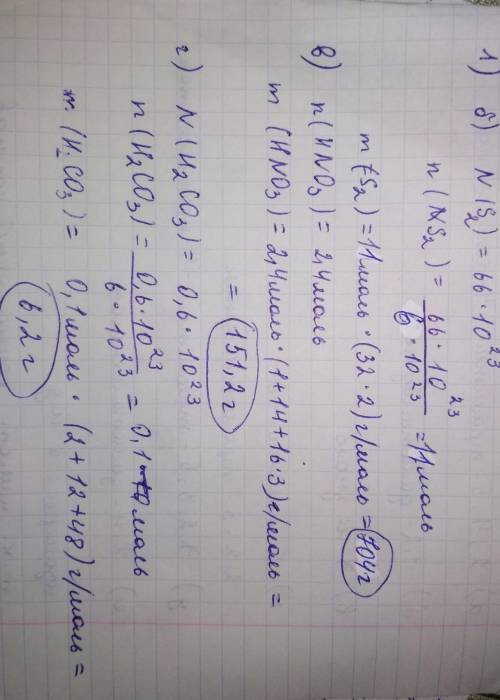 1) б) N(S₂) = 66 · 10²³
n(S₂) = 66 · 10²³ / 6 · 10²³ = 11 моль
m(S₂) = 11 моль · (32 · 2) г/моль = 704 г
в) n(HNO₃) = 2,4 моль
m(HNO₃) = 2,4 моль · (1 + 14 + 16·3) г/моль =
= 151,2 г
г) N(H₂CO₃) = 0,6 · 10²³
n(H₂CO₃) = 0,6 · 10²³ / 6 · 10²³ = 0,1 моль
m(H₂CO₃) = 0,1 моль · (2 + 12 + 48) г/моль =
6,2 г